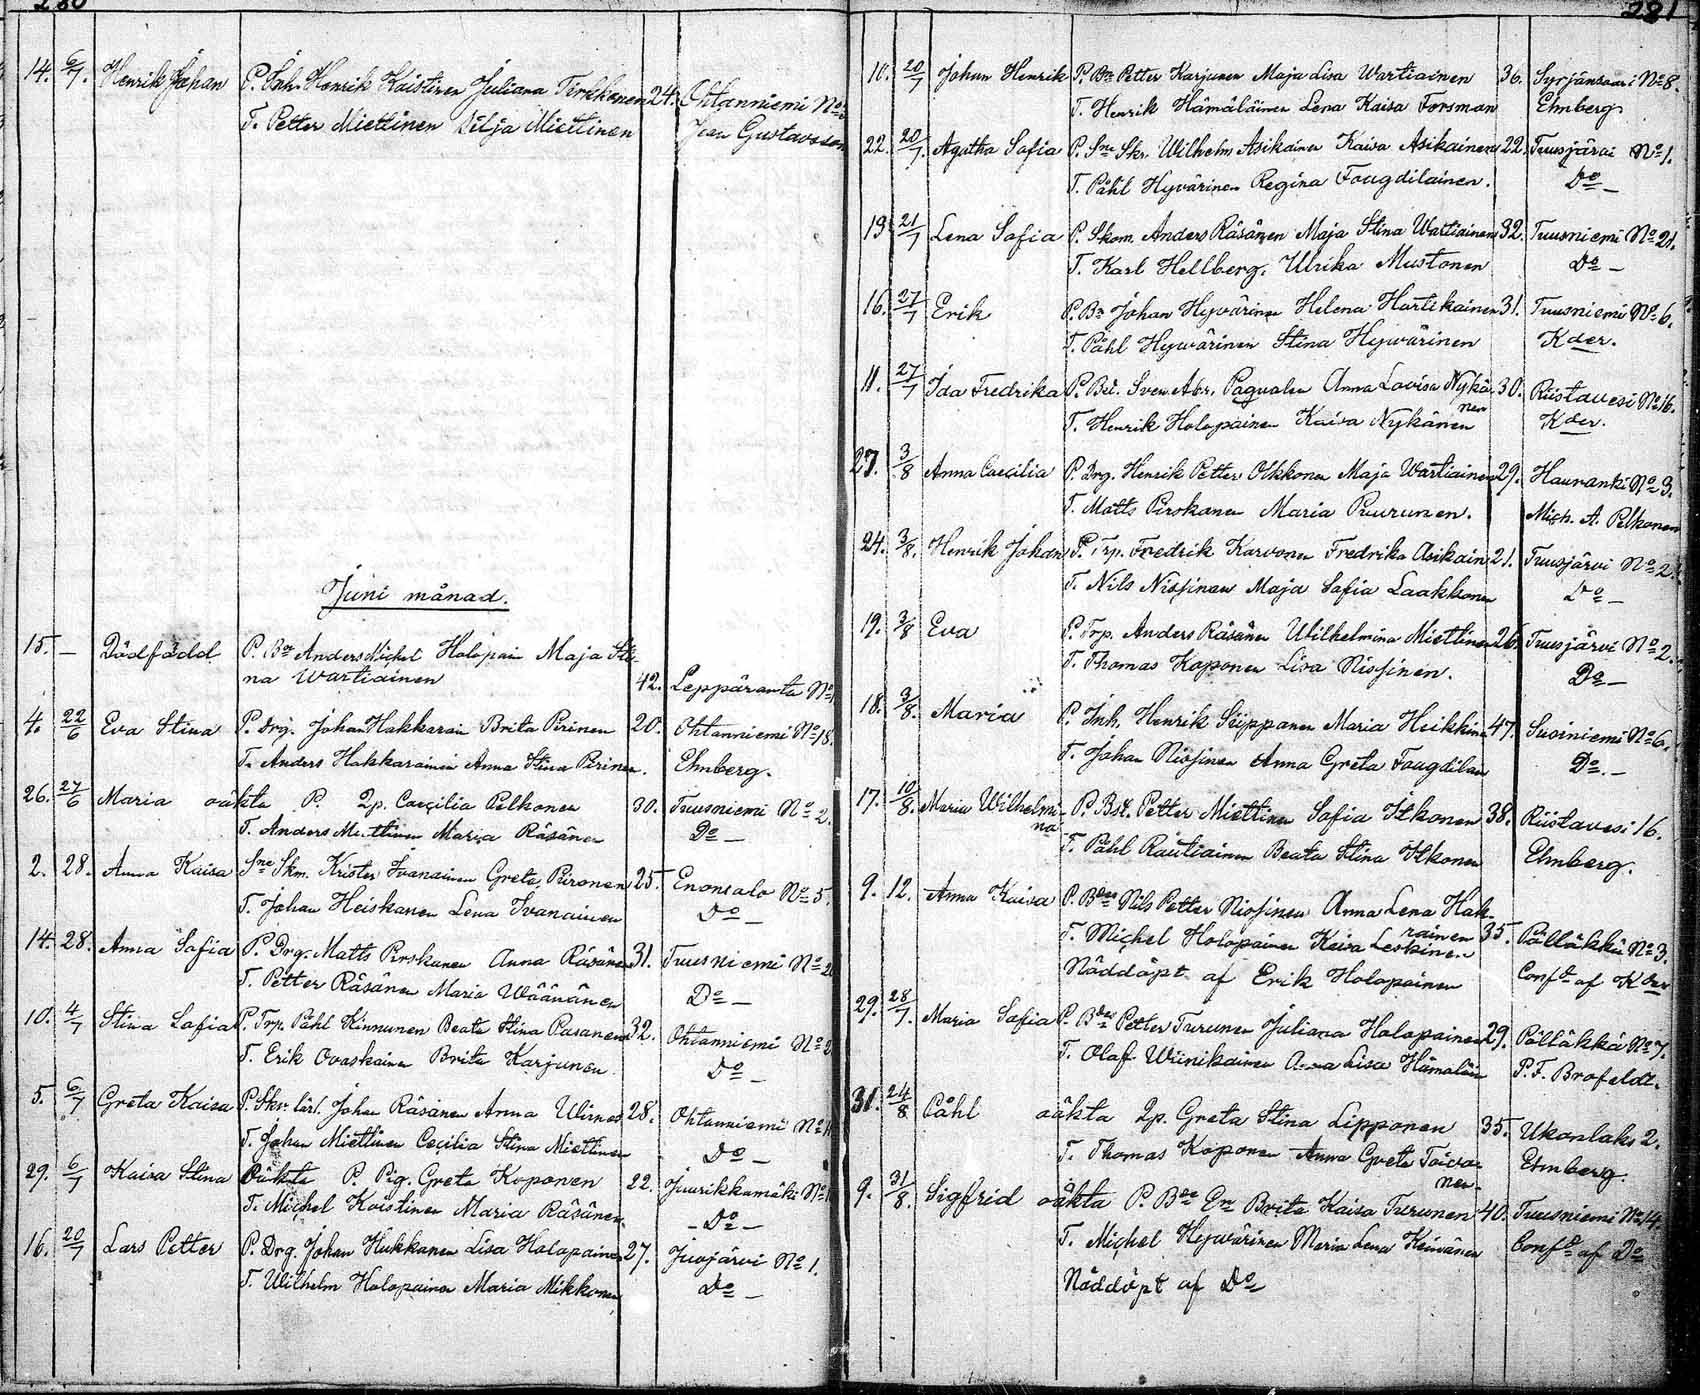 280
14. 6/7. Henrik Johan P. Inh. Henrik Kaistinen Juliana Tirkkonen 24. Ohtanniemi No
T. Petter Miettinen Silja Miettinen Jean Gustavsson
Juni månad.
15. — Dödfödd P. Bde Anders Michel Holopain Maja Sti-
na Wartiainen 42. Leppäranta No
4. 22/6 Eva Stina P. Drg. Johan Hakkarain Brita Pirinen 20. Ohtanniemi No 18.
T. Anders Hakkarainen Anna Stina Pirinen. Ehnberg.
26. 27/6 Maria oäkta P. Qp. Caecilia Pelkonen 30. Tuusniemi No 2.
T. Anders Miettinen Maria Räsänen Do —
2. 28. Anna Kaisa Sne Skm. Krister Ivanainen Greta Piironen 25. Enonsalo No 5.
T. Johan Heiskanen Lena Ivanainen Do —
14. 28. Anna Sofia P. Drg. Matts Pirskanen Anna Räsänen 31. Tuusniemi No 2
T. Petter Räsänen Maria Wäänänen Do —
10. 4/7 Stina Sofia P. Trp. Påhl Kinnunen Beata Stina Rasanen 32. Ohtanniemi No 2
T. Erik Ovaskainen Brita Karjunen Do —
5. 6/7 Greta Kaisa P. Skr. lärl. Johan Räsänen Anna Wirnes 28. Ohtanniemi No
T. Johan Miettinen Cecilia Stina Miettinen Do —
29. 6/7 Kaisa Stina Oäkta P. Pig. Greta Koponen 22. Juurikkamäki No
T. Michel Kaistinen Maria Räsänen. — Do —
16. 20/7 Lars Petter P. Drg. Johan Hukkanen Lisa Holopainen 27. Juojärvi No 1.
T. Wilhelm Holopainen Maria Mikkonen Do —
281
10. 20/7 Johan Henrik P. Bn Petter Karjunen Maja Lisa Wartiainen 36. Syrjänsaari No 8.
T. Henrik Hämäläinen Lena Kaisa Forsman Ehnberg.
22. 20/7. Agatha Sofia P. Sne Skr. Wilhelm Asikainen Kaisa Asikainen 22. Tuusjärvi No 1.
T. Påhl Hyvärinen Regina Fougdilainen. Do —
19 21/7 Lena Sofia P. Skom. Anders Räsänen Maja Stina Wartiainen 32. Tuusniemi No 21.
T. Karl Hellberg. Ulrika Mustonen Do —
16. 27/7 Erik P. Bn Johan Hyvärinen Helena Hartikainen 31. Tuusniemi No 6.
T. Påhl Hyvärinen Stina Hyvärinen Kder.
11. 27/7 Ida Fredrika P. Bst. Sven Abr. Pagualen Anna Lovisa Nykä- 30. Riistavesi No 16.
nen
T. Henrik Holopainen Kaisa Nykänen Kder.
27. 3/8 Anna Caecilia P. Drg. Henrik Petter Olkkonen Maja Wartiainen 29. Hauranki No 3.
T. Matts Pirskanen Maria Puurunen. Mich. A. Pelkonen
24. 3/8. Henrik Johan P. Trp. Fredrik Karvonen Fredrika Asikain 21. Tuusjärvi No 2.
T. Nils Nissinen Maja Sofia Laakkonen Do —
19. 3/8 Eva P. Trp. Anders Räsänen Wilhelmina Miettinen 26. Tuusjärvi No 2.
T. Thomas Koponen Lisa Nissinen. Do —
18. 3/8. Maria P. Inh. Henrik Siippanen Maria Heikkinen 47. Susiniemi No 6.
T. Johan Nissinen Anna Greta Fougdilan Do. —
17. 10/8. Maria Wilhelmi- P. Bst. Petter Miettinen Sofia Itkonen 38. Riistavesi 16.
na
T. Påhl Rautiainen Beata Stina Itkonen Ehnberg.
9. 12. Anna Kaisa P. Bdes Nils Petter Nissinen Anna Lena Hak-
rainen 35. Pölläkkä No 3.
T. Michel Holopainen Kaisa Leskinen
Nöddöpt af Erik Holopainen Conft af Kder
29. 28/7. Maria Sofia P. Bdes Petter Turunen Juliana Holopainen 29. Pölläkkä No 7.
T. Olaf Wiinikainen Anna Lisa Hämäläin P. F. Brofeldt.
31. 24/8 Påhl oäkta Qp. Greta Stina Lipponen 35. Ukonlaks 2.
T. Thomas Koponen Anna Greta Toiva-
nen Ehnberg.
9. 31/8. Sigfrid oäkta P. Bde En Brita Kaisa Turunen 40. Tuusniemi No 14.
T. Michel Hyvärinen Maria Lena Keinänen Confd af Do
Nöddöpt af Do